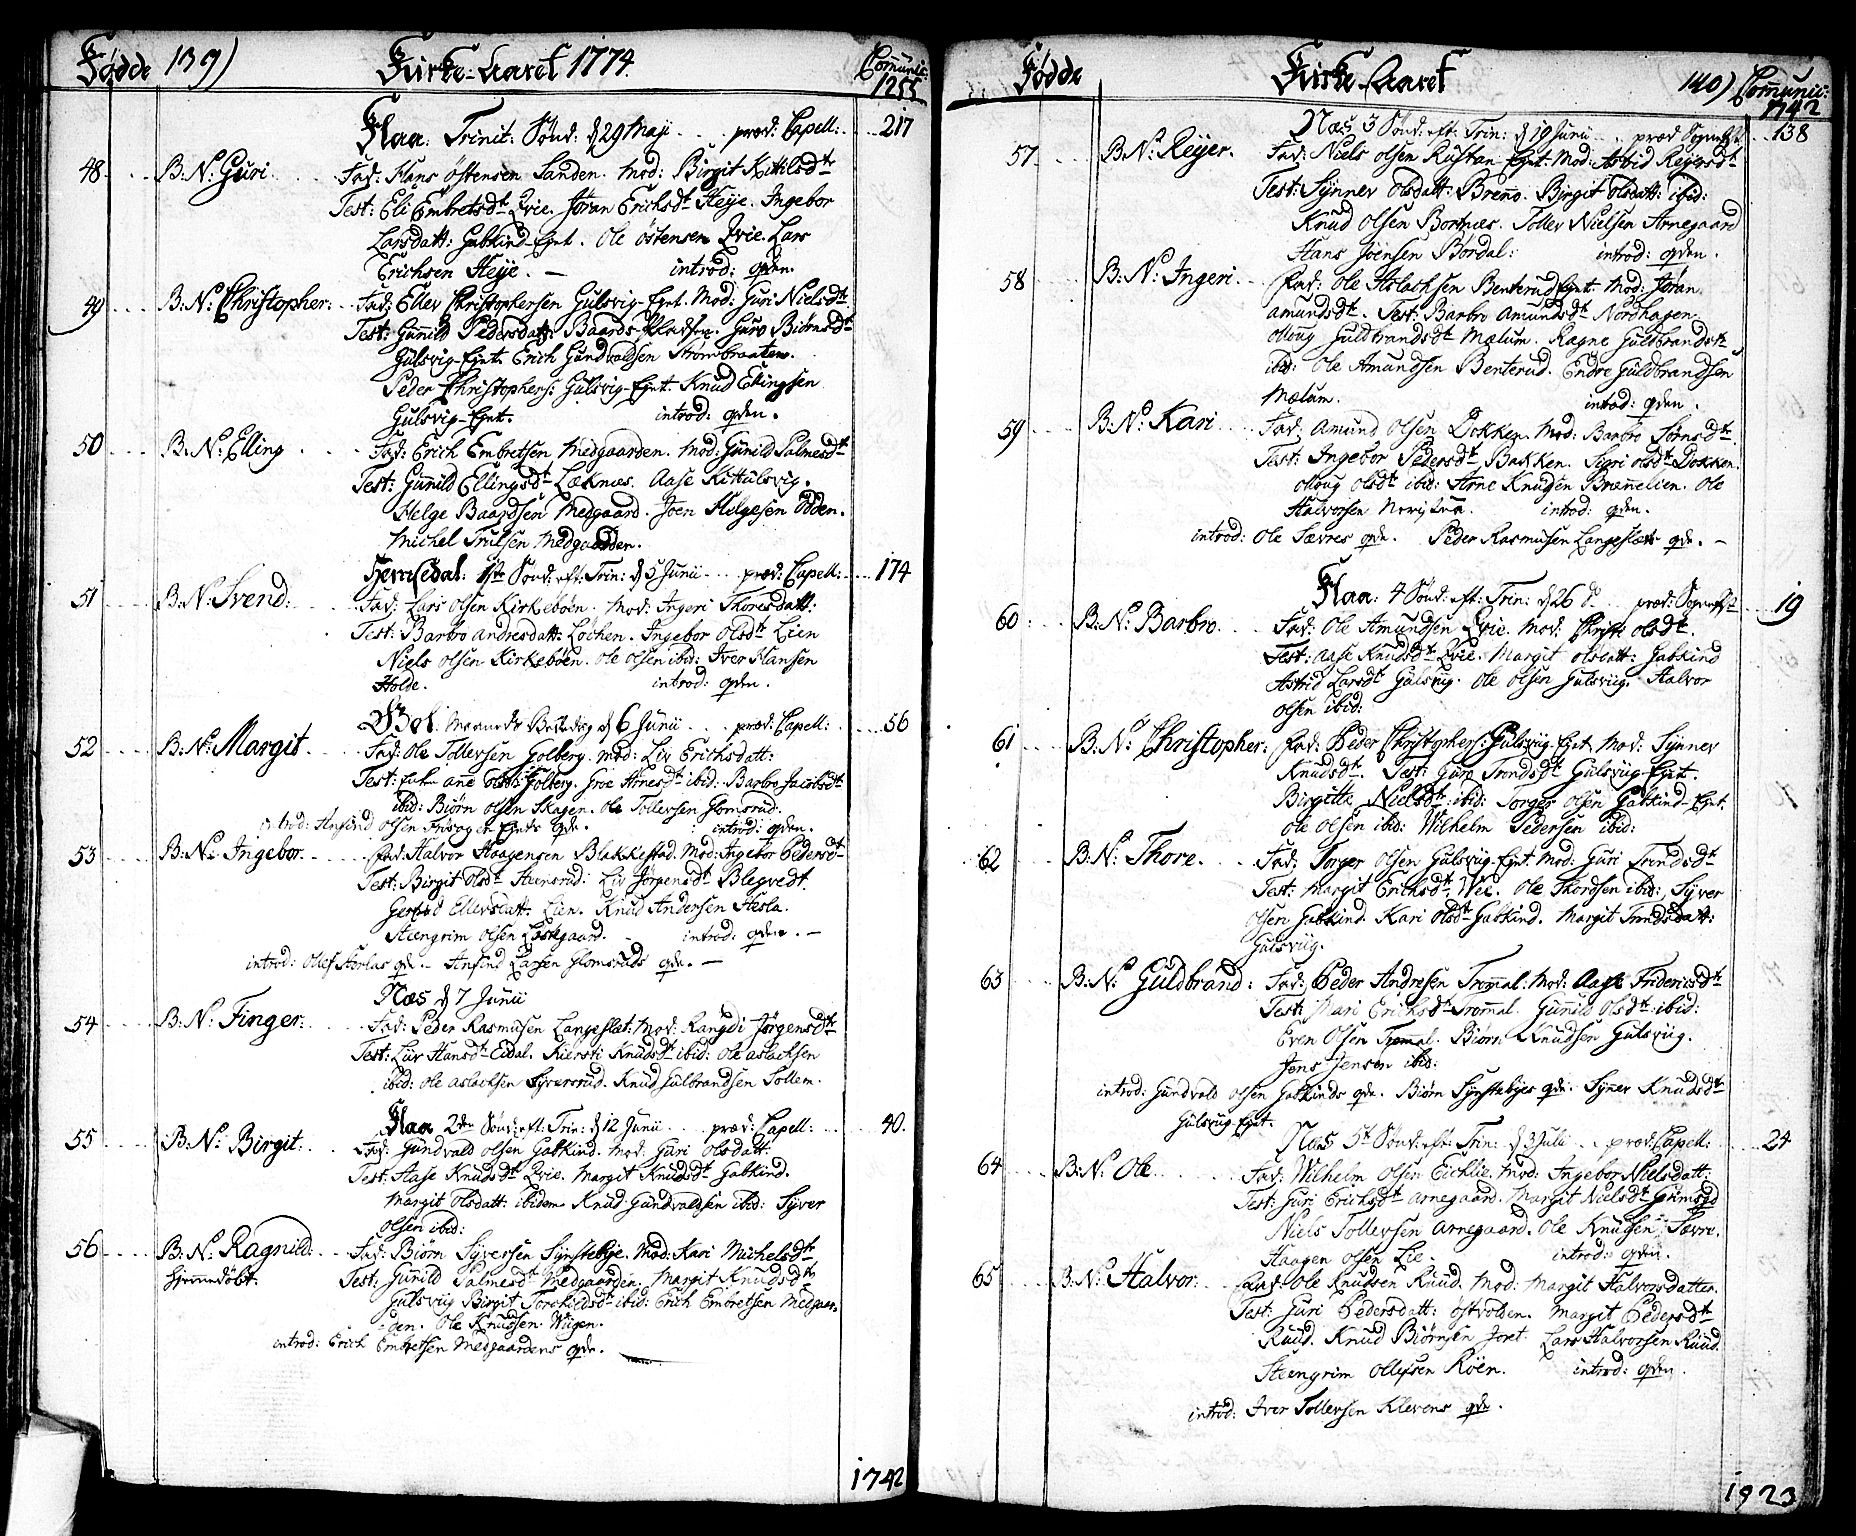 Fødde 139) Kirke-Aaret 1774. Comunic:
1255
Flaa: Trinit: Sønd: d 29 Maji .... præd: Capell: ... 217
48 .... B: N: Guri ..... Fad: Hans Østensen Sanden. Mod: Birgit Kittilsdtr
Test: Eli Embretsdt Qvie. Jøran Erichsdt Heije. Ingebor
Larsdatt: Gabkind-Eynt. Ole Østensen Qvie. Lars
Erichsen Heije. — introd: qvden.
49 .... B: N: Christopher: .. Fad: Ellev Christophersen Gulsvig-Eynt. Mod: Guri Nielsdt
Test: Gunnild Pedersdatt: Baards Pladsen. Guro Biørnsdt
Gulsvig-Eynt. Erich Gundvaldsen Strømbraaten.
Peder Christophers: Gulsvig-Eynt. Knud Ellingsen
Gulsvig-Eynt. introd: qvden.
50 .... B: N: Elling .... Fad: Erich Embretsen Medgaarden. Mod: Gunild Palmesdt
Test: Gunnild Ellingsdt Læknæs. Aase K: Gulsvig.
Helge Baardsen Medgaard. Joen Helgesen Odden.
Michel Trulsen Medgaarden.
Hemsedal: 1ste Sønd: eft: Trin: d 5 Junii .... præd: Capell: ... 174
51 .... B: N: Svend: .... Fad: Lars Olsen Kirkebøen. Mod: Ingeri Thoresdatt:
Test: Barbro Andresdatt: Løchen. Ingebor Olsdt Lien
Niels Olsen Kirkebøen. Ole Olsen ibid: Iver Hansen
Holde. introd: qvden.
Gol. Maaneds Bededag d 6 Junii .... præd: Capell: .. 56
52 .... B: N: Margit .... Fad: Ole Tollevsen Golberg. Mod: Liv Erichsdatt:
Test: Ane Golberg. Groe Arnesdt ibid: Barbro Jacobsdt
ibid: Biørn Olsen Skagen. Ole Tollevsen Glomsrud.
introd: Arfind Olsen Eynts qde. introd: qvden.
53 .... B: N: Ingebor .... Fad: Halvor Haagensen Blakkestad. Mod: Ingebor Pedersdt
Test: Birgit Olsdt Huusrud: Liv Jørgensdt Blegvedt.
Gertrud Ellevsdatt: Lien. Knud Andersen Hesla.
Steengrim Olsen Løstegaard. introd: qvden. —
introd: Oluf Herlas qde. Anfind Larsen Glomsruds qde. —
Næs d 7 Junii
54 .... B: N: Finger: .... Fad: Peder Rasmusen Langeslet: Mod: Rangdi Jørgensdt
Test: Liv Hansdt Eidal. Kiersti Knudsdt ibid: Ole Aslachsen
ibid: Ole Aslachsen Syversrud. Knud Gulbrandsen Sollem.
Flaa 2den Sønd: eft: Trin: d 12 Junii .... præd: Capell: .... 40.
55 .... B: N: Birgit .... Fad: Gundvald Olsen Gabkind. Mod: Guri Olsdatt:
Test: Aase Knudsdt Qvie. Margit Knudsdt Gabkind.
Margit Olsdatt: ibidem Knud Gundvaldsen ibid: Syver
Olsen ibid:
56 .... B: N: Ragnild .... Fad: Biørn Syversen Synstebye. Mod: Kari Michelsdt
hjemmedøbt. Test: Gunild Palmesdt Medgaarden. Margit Knudsdt
Gulsviig Birgit Torchildsdt ibid: Erich Embretsen Medgaar-
den. Ole Knudsen Wiigen.
introd: Erich Embretsen Medgaardens qde.
1742
Fødde Kirke-Aaret 140) Comunic:
1742
Næs 3 Sønd: eft: Trin: d 19 Junii ... præd Sognepr: .. 138
57 .... B: N: Reyer. Fad: Niels Olsen Rustan Eynt. Mod: Astrid Reyersdt
Test: Synnev Olsdatt: Brenno. Birgit Olsdatt: ibid:
Knud Olsen Bortnæs. Tollev Nielsen Arnegaard
Hans Joensen Bordal: introd: qvden.
58 .... B: N: Ingeri ... Fad: Ole Aslachsen Benterud Eynt. Mod: Jøran
Amundsdt. Test: Barbro Amundsdt Nordhagen.
Olloug Guldbrandsdt Mælum. Ragne Guldbrandsdt
ibid: Ole Amundsen Benterud. Endre Guldbrandsen
Mælum. introd: qvden.
59 .... B: N: Kari .... Fad: Amund Olsen Dokken. Mod: Barbro Sørnsdt
Test: Ingebor Pedersdt Bakken. Sigri Olsdt Dokken.
Olloug Olsdt ibid: Arne Knudsen Brænnelien. Ole
Halvorsen introd: qvden.
introd: Ole Sævres qde. Peder Rasmusen Langeslets qde. —
Flaa: 4 Sønd: eft: Trin: d 26 d: præd: Sognepr: ... 19
60 .... B: N: Barbro .... Fad: Ole Amundsen Qvie. Mod: Christi Olsdt.
Test: Aase Knudsdt Qvie. Margit Olsdatt: Gabkind
Astrid Larsdt Gulsviig. Ole Olsen Gulsviig. Halvor
Olsen ibid:
61 .... B: N: Christopher: Fad: Peder Christophers: Gulsviig-Eynt. Mod: Synnev
Knudsdt. Test: Guro Trondsdt Gulsviig-Eynt.
Birgitte Nielsdt: ibid: Torger Olsen Gabkind-Eynt.
Ole Olsen ibid: Wilhelm Pedersen ibid:
62 .... B: N: Thore. .... Fad: Torger Olsen Gulsviig-Eynt Mod: Guri Trondsdt
Test: Margit Erichsdt Wie. Ole Thordsen ibid: Syver
Olsen Gabkind. Kari Olsdt Gabkind. Margit Trondsdatt:
Gulsviig.
63 B: N: Guldbrand: Fad: Peder Andresen Trommal: Mod: Aase Fridericsdt
Test: Mari Erichsdt Trommal. Gunnild Olsdt ibid:
Even Olsen Trommal. Biørn Knudsen Gulsviig.
Jens Jensen ibid:
introd: Gundvald Olsen Gabkinds qde. Biørn Synstebyes qde. Synev Knudsdt
Gulsviig-Eynt.
Næs 5t Sønd: eft: Trin: d 3 Julii ... præd: Capell: .... 24
64 .... B: N: Ole .... Fad: Wilhelm Olsen Eichlie. Mod: Ingebor Nielsdatt:
Test: Guri Erichsdt Arnegaard. Margit Nielsdt Grimsgd
Niels Tollevsen Arnegaard. Ole Knudsen Sævre.
Haagen Olsen Lie. introd: qvden.
65 .... B: N: Halvor. .. Fad: Ole Knudsen Ruud. Mod: Margit Halvorsdatter.
Test: Guri Pedersdatt: Østrolden. Margit Pedersdt
Ruud. Knud Biørnsen Jort. Lars Halvorsen Ruud.
Steengrim Ollefsen Røen. introd: qvden.
introd: Iver Tollevsen Klevens qde.
1923